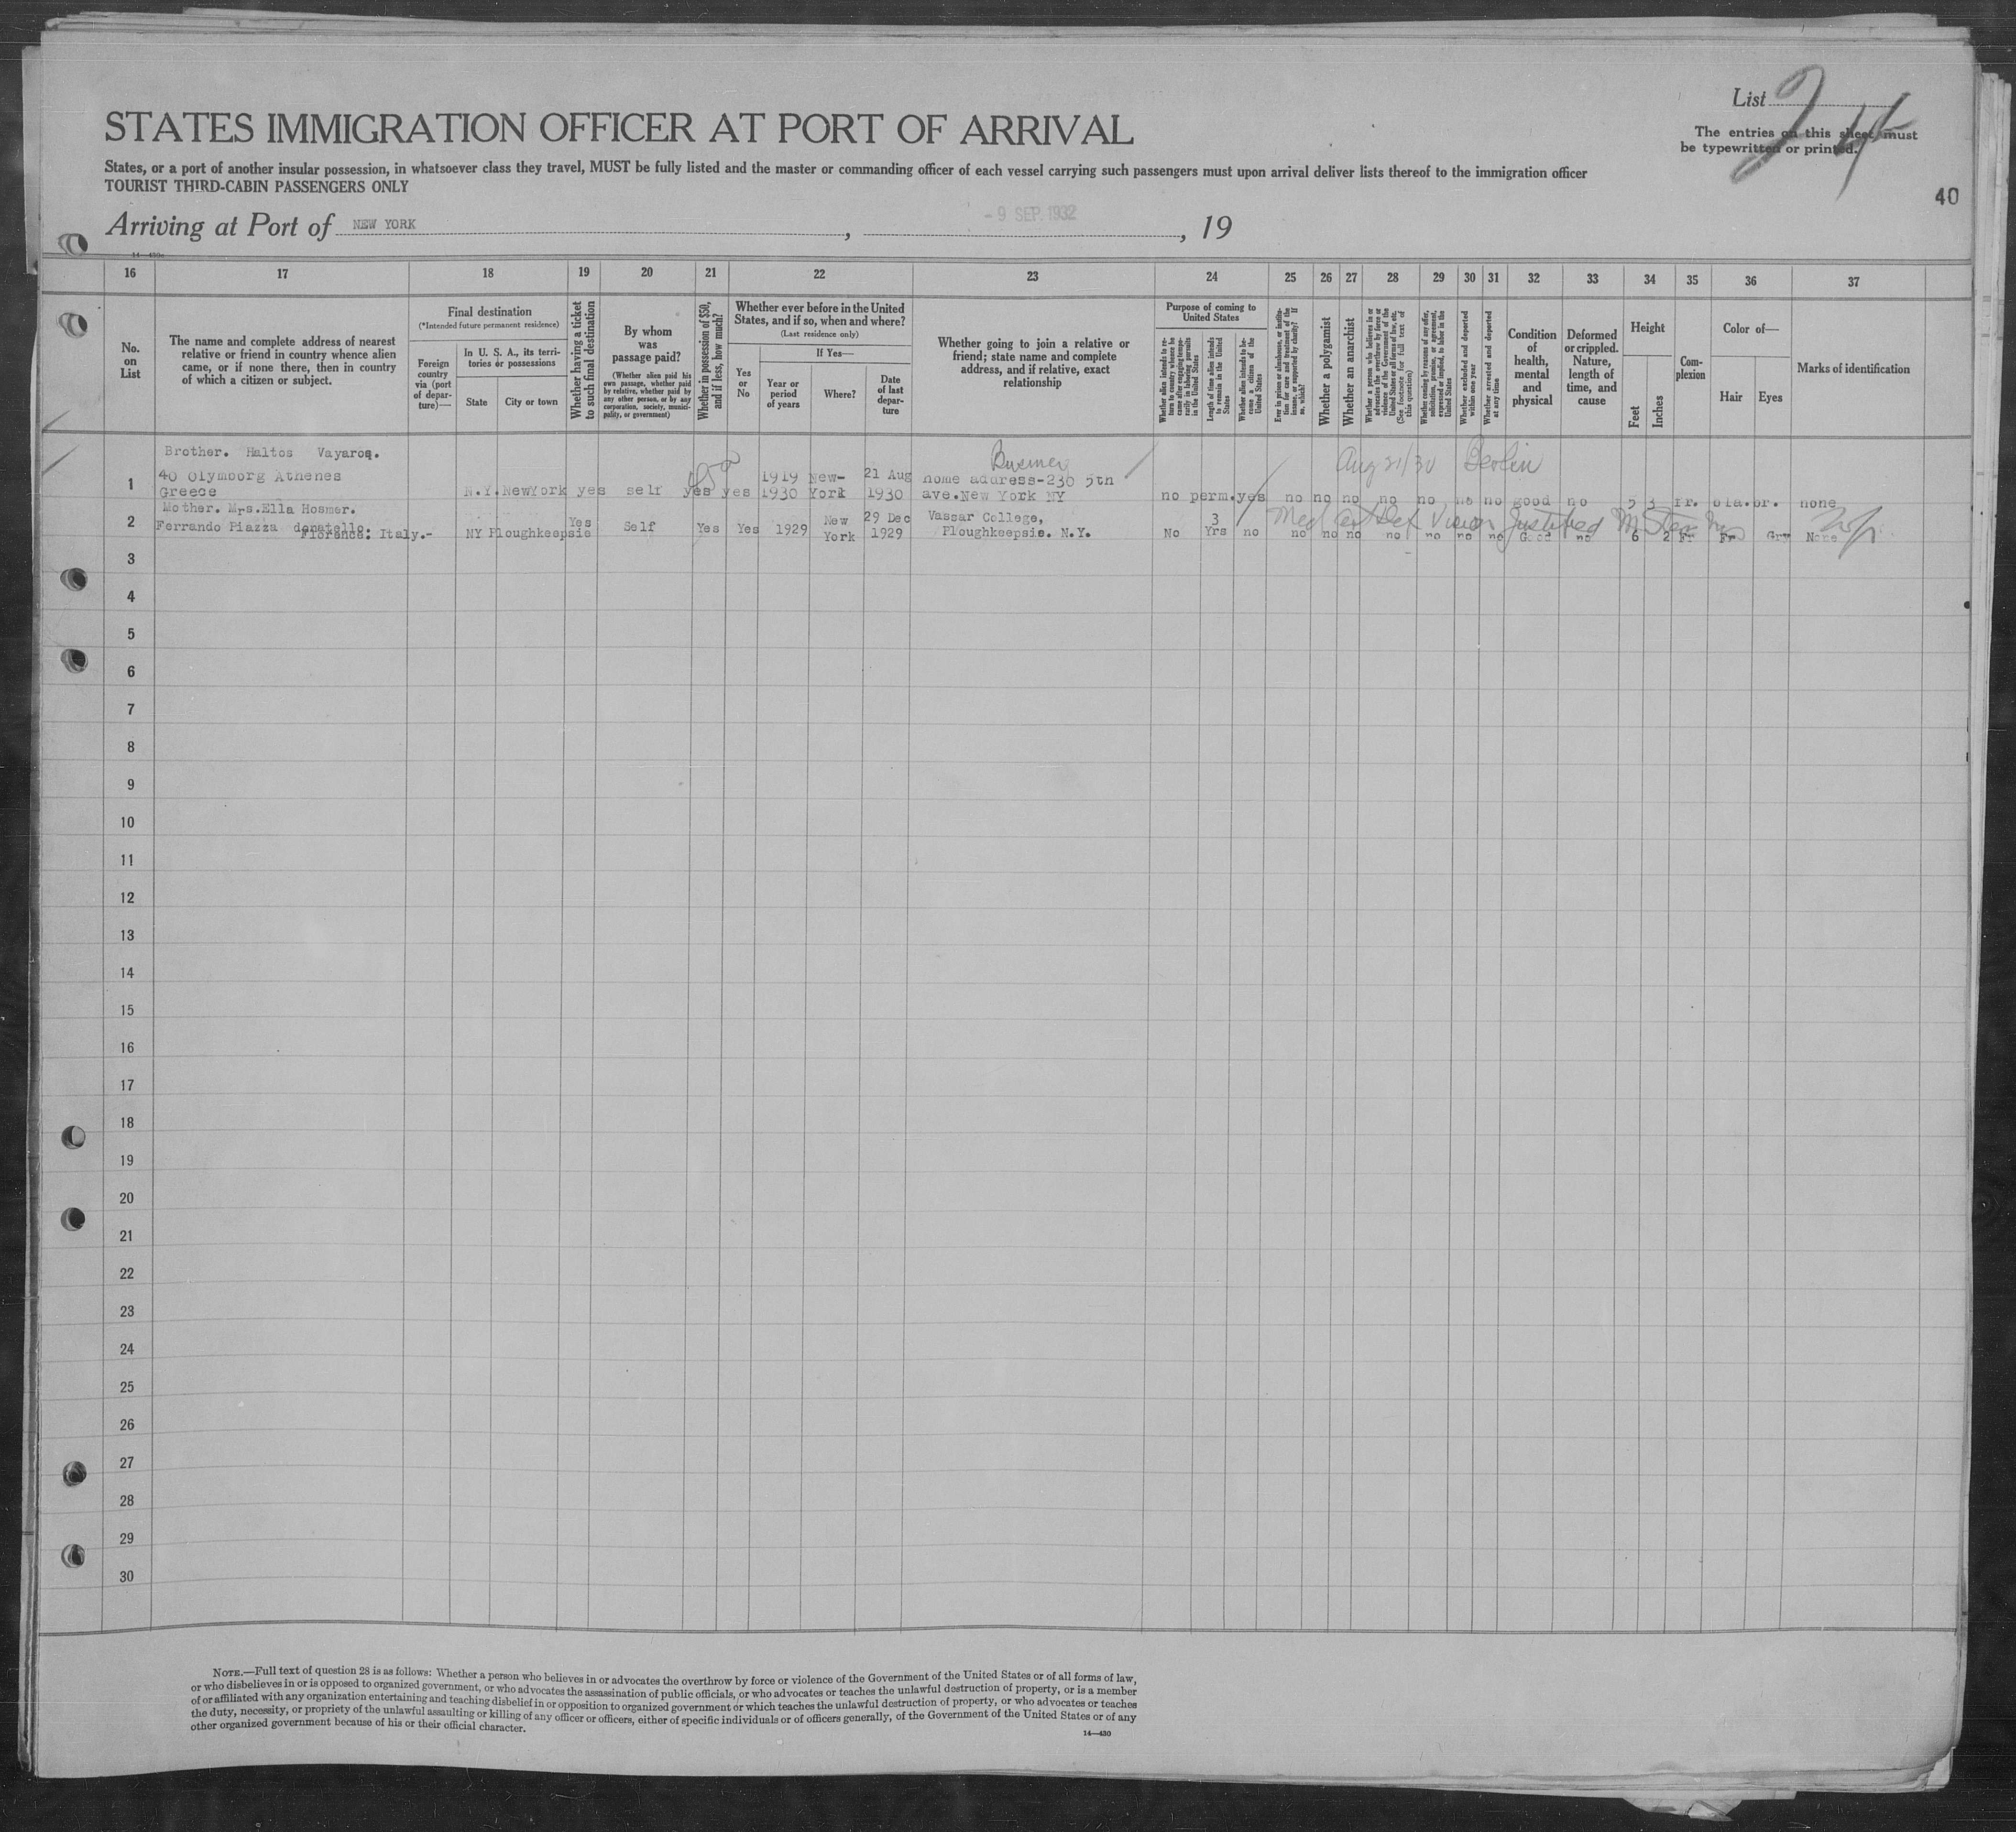 List
24
The entries on this sheet must
be typewritten or printed.
40
STATES IMMIGRATION OFFICER AT PORT OF ARRIVAL
States, or a port of another insular possession, in whatsoever class they travel, MUST be fully listed and the master or commanding officer of each vessel carrying such passengers must upon arrival deliver lists thereof to the immigration officer
TOURIST THIRD-CABIN PASSENGERS ONLY
Arriving at Port of NEW YORK, - 9 SEP. 1932, 19
14—430a
16 17 18 19 20 21 22 23 24 25 26 27 28 29 30 31 32 33 34 35 36 37
No. on List
The name and complete address of nearest relative or friend in country whence alien came, or if none there, then in country of which a citizen or subject.
Final destination
(*Intended future permanent residence)
Foreign country via (port of departure)—
In U. S. A., its territories or possessions
State
City or town
Whether having a ticket to such final destination
By whom was passage paid?
(Whether alien paid his own passage, whether paid by relative, whether paid by any other person, or by any corporation, society, municipality, or government)
Whether in possession of $50, and if less, how much?
Whether ever before in the United States, and if so, when and where?
(Last residence only)
Yes or No
If Yes—
Year or period of years
Where?
Date of last departure
Whether going to join a relative or friend; state name and complete address, and if relative, exact relationship
Purpose of coming to United States
Whether alien intends to return to country whence he came after engaging temporarily in laboring pursuits in the United States
Length of time alien intends to remain in the United States
Whether alien intends to become a citizen of the United States
Ever in prison or almshouse, or institution for care and treatment of the insane, or supported by charity? If so, which?
Whether a polygamist
Whether an anarchist
Whether a person who believes in or advocates the overthrow by force or violence of the Government of the United States or all forms of law, etc. (See footnote for full text of this question)
Whether coming by reasons of any offer, solicitation, promise, or agreement, expressed or implied, to labor in the United States
Whether excluded and deported within one year
Whether arrested and deported at any time
Condition of health, mental and physical
Deformed or crippled. Nature, length of time, and cause
Height
Feet
Inches
Complexion
Color of—
Hair
Eyes
Marks of identification
Brother. Haltos Vayaros.
Busines
Aug 21/30 Berlin
1 40 Olymborg Athenes
Greece
N.Y. NewYork yes self yes yes 1919 1930 New-York 21 Aug 1930 home address-230 5th
ave.New York NY no perm. yes no no no no no no no good no 5 3 fr. bla. br. none
Mother. Mrs.Ella Hosmer.
2 Ferrando Piazza donatello.
Florence. Italy.- NY Ploughkeepsie Yes Self Yes Yes 1929 New York 29 Dec 1929 Vassar College,
Ploughkeepsie. N.Y. No 3 Yrs no no no no no no no no Good no 6 2 Fr Fr Gry None
Med Cert Def Vision Justified
3
4
5
6
7
8
9
10
11
12
13
14
15
16
17
18
19
20
21
22
23
24
25
26
27
28
29
30
NOTE.—Full text of question 28 is as follows: Whether a person who believes in or advocates the overthrow by force or violence of the Government of the United States or of all forms of law,
or who disbelieves in or is opposed to organized government, or who advocates the assassination of public officials, or who advocates or teaches the unlawful destruction of property, or is a member
of or affiliated with any organization entertaining and teaching disbelief in or opposition to organized government or which teaches the unlawful destruction of property, or who advocates or teaches
the duty, necessity, or propriety of the unlawful assaulting or killing of any officer or officers, either of specific individuals or of officers generally, of the Government of the United States or of any
other organized government because of his or their official character.
14—430